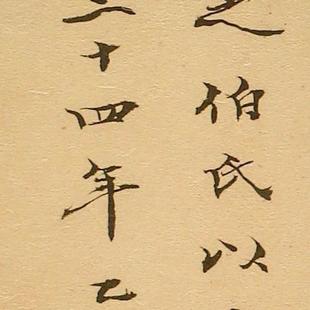 之伯氏以
二十四年乙